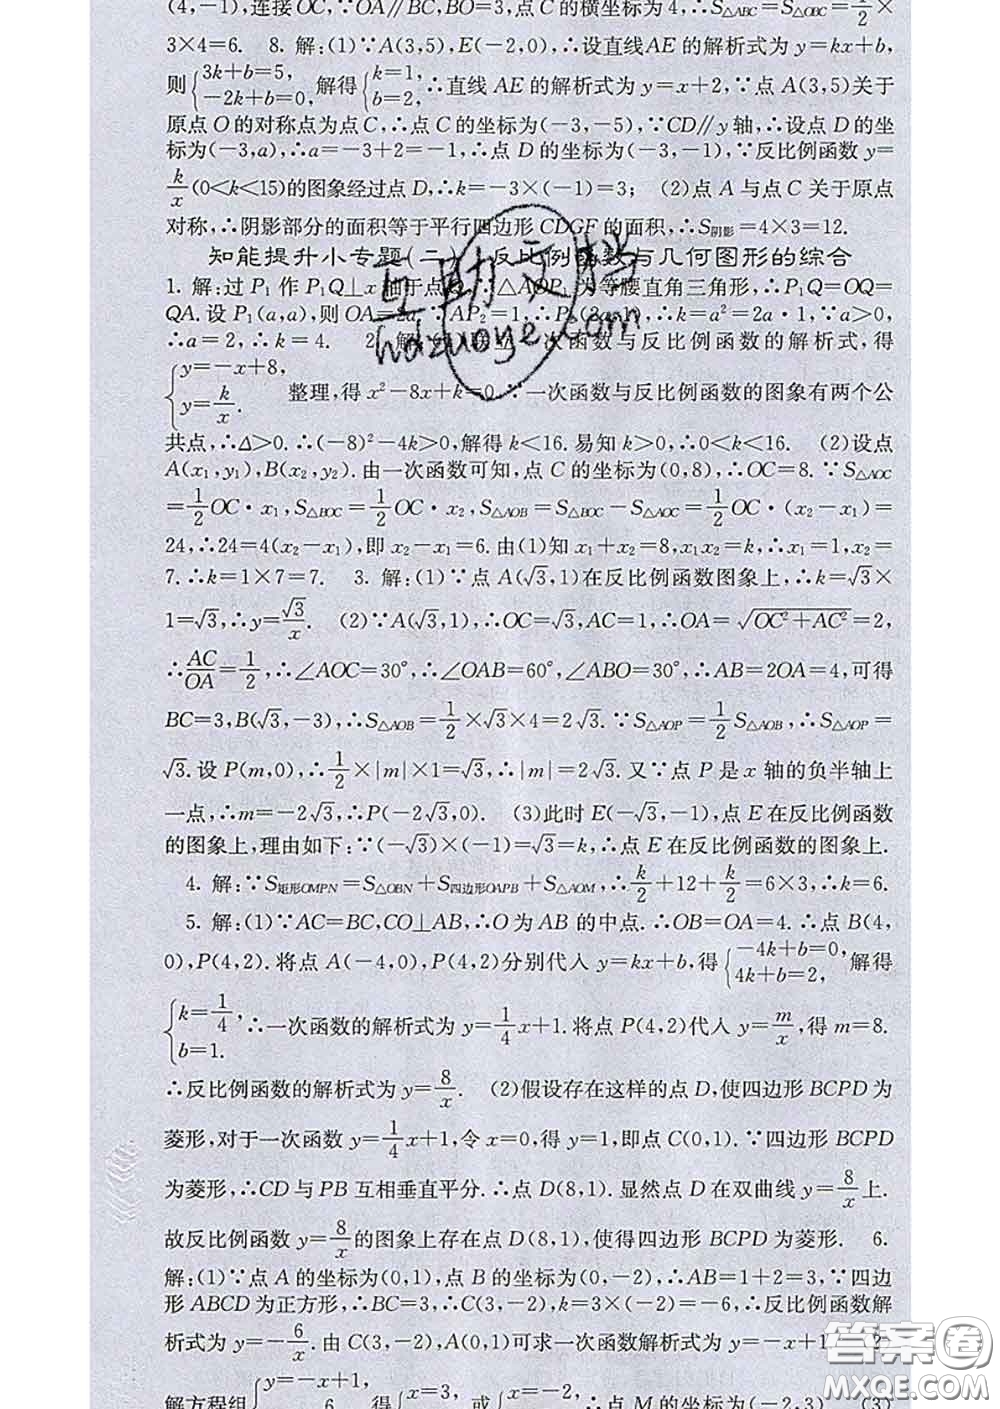 (4,-1),连接OC,∵OA∥BC,BO=3,点C的横坐标为4,∴S△ABC=S△OBC=1/2×
3×4=6. 8. 解:(1)∵A(3,5),E(-2,0),∴设直线AE的解析式为y=kx+b,
则{3k+b=5, -2k+b=0, 解得{k=1, b=2, ∴直线AE的解析式为y=x+2,∵点A(3,5)关于
原点O的对称点为点C,∴点C的坐标为(-3,-5),∵CD∥y轴,∴设点D的坐
标为(-3,a),∴a=-3+2=-1,∴点D的坐标为(-3,-1),∵反比例函数y=
k/x(0<k<15)的图象经过点D,∴k=-3×(-1)=3; (2)点A与点C关于原点
对称,∴阴影部分的面积等于平行四边形CDGF的面积,∴S阴影=4×3=12.
知能提升小专题(二) 反比例函数与几何图形的综合
1. 解:过P₁作P₁Q⊥x轴于点Q,∵△AOP₁为等腰直角三角形,∴P₁Q=OQ=
QA.设P₁(a,a),则OA=2a,∵AP₂=1,∴P₂(2a,1),∴k=a²=2a·1,∵a>0,
∴a=2,∴k=4. 2. 解:(1)联立一次函数与反比例函数的解析式,得
{y=-x+8, y=k/x. 整理,得x²-8x+k=0.∵一次函数与反比例函数的图象有两个公
共点,∴Δ>0.∴(-8)²-4k>0,解得k<16.易知k>0,∴0<k<16. (2)设点
A(x₁,y₁),B(x₂,y₂).由一次函数可知,点C的坐标为(0,8),∴OC=8.∵S△AOC
=1/2OC·x₁,S△BOC=1/2OC·x₂,S△AOB=S△BOC-S△AOC=1/2OC·(x₂-x₁)=
24,∴24=4(x₂-x₁),即x₂-x₁=6.由(1)知x₁+x₂=8,x₁x₂=k,∴x₁=1,x₂=
7.∴k=1×7=7. 3. 解:(1)∵点A(√3,1)在反比例函数图象上,∴k=√3×
1=√3,∴y=√3/x. (2)∵A(√3,1),∴OC=√3,AC=1,∴OA=√(OC²+AC²)=2,
∴AC/OA=1/2,∴∠AOC=30°,∴∠OAB=60°,∠ABO=30°,∴AB=2OA=4,可得
BC=3,B(√3,-3),∴S△AOB=1/2×√3×4=2√3.∵S△AOP=1/2S△AOB,∴S△AOP=
√3.设P(m,0),∴1/2×|m|×1=√3,∴|m|=2√3.又∵点P是x轴的负半轴上
一点,∴m=-2√3,∴P(-2√3,0). (3)此时E(-√3,-1),点E在反比例函数
的图象上,理由如下:∵(-√3)×(-1)=√3=k,∴点E在反比例函数的图象上.
4. 解:∵S矩形OMPN=S△OBN+S四边形OAPB+S△AOM,∴k/2+12+k/2=6×3,∴k=6.
5. 解:(1)∵AC=BC,CO⊥AB,∴O为AB的中点.∴OB=OA=4.∴点B(4,
0),P(4,2).将点A(-4,0),P(4,2)分别代入y=kx+b,得{-4k+b=0, 4k+b=2, 解得
{k=1/4, b=1. ∴一次函数的解析式为y=1/4x+1.将点P(4,2)代入y=m/x,得m=8.
∴反比例函数的解析式为y=8/x. (2)假设存在这样的点D,使四边形BCPD为
菱形,对于一次函数y=1/4x+1,令x=0,得y=1,即点C(0,1).∵四边形BCPD
为菱形,∴CD与PB互相垂直平分.∴点D(8,1).显然点D在双曲线y=8/x上.
故反比例函数y=8/x的图象上存在点D(8,1),使得四边形BCPD为菱形. 6.
解:(1)∵点A的坐标为(0,1),点B的坐标为(0,-2),∴AB=1+2=3,∵四边
形ABCD为正方形,∴BC=3,∴C(3,-2),k=3×(-2)=-6,∴反比例函数解
析式为y=-6/x.由C(3,-2),A(0,1)可求一次函数解析式为y=-x+1
解方程组{y=-x+1, 6 得{x=3, 或{x=-2, ∴点M的坐标为(-2,3) (3)
互助文档
hdzuoye.com
答案圈
MXQE.COM